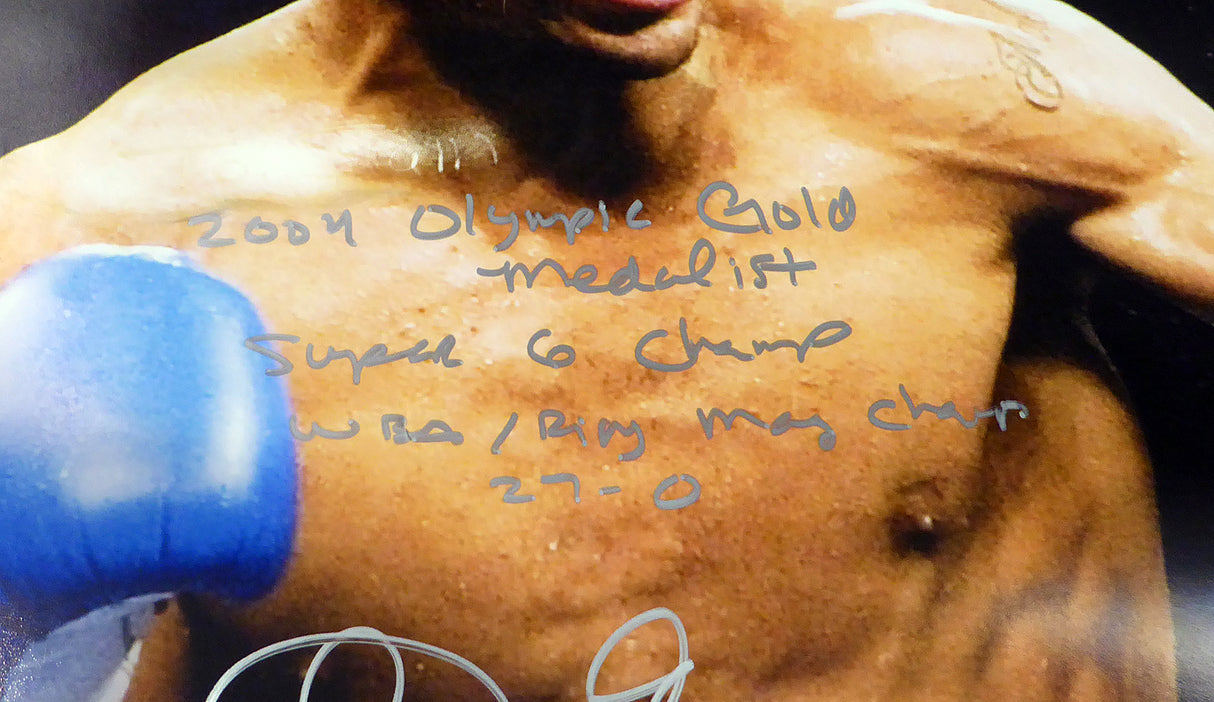 2004 Olympic Gold
Medalist
Super 6 Champ
WBA / Ring Mag Champ
27-0